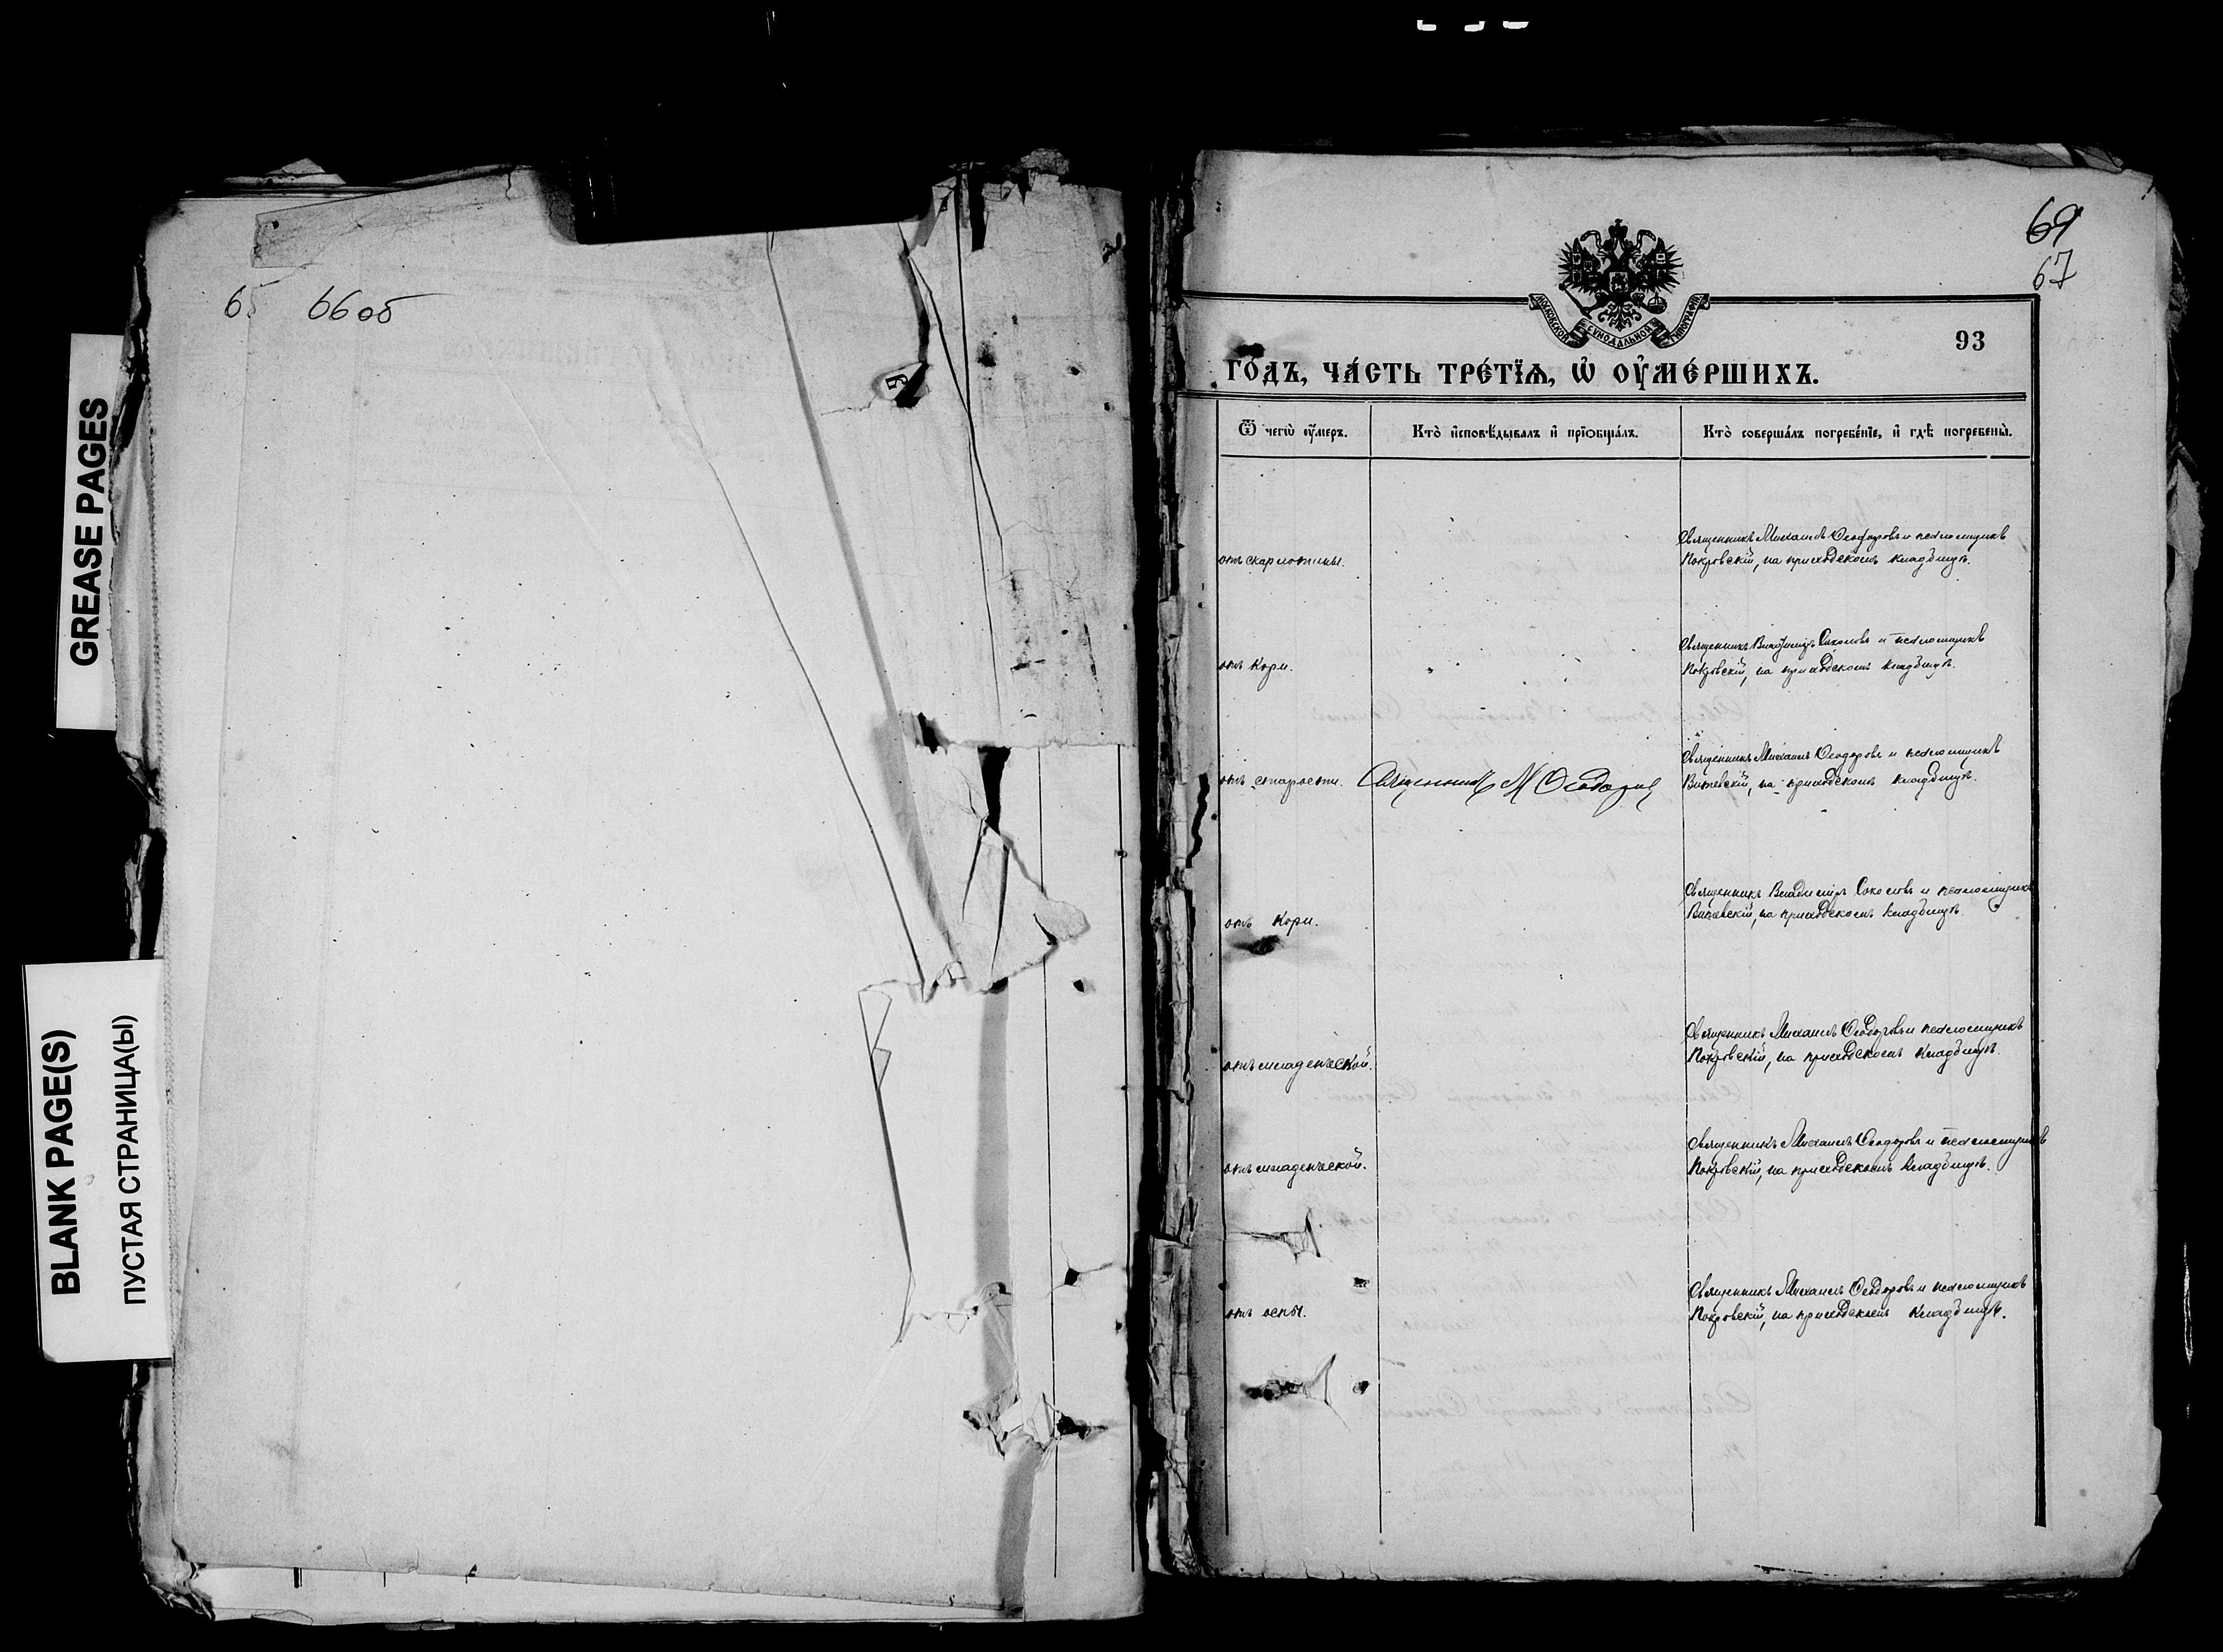 GREASE PAGES
BLANK PAGE(S)
ПУСТАЯ СТРАНИЦА(Ы)
66об
69
67
МОСКОВСКОЙ СѴНОДАЛЬНОЙ ТИПОГРАФІИ
93
ГО́ДЪ, ЧА́СТЬ ТРЕ́ТЇѦ, Ѡ҆ ОУ҆МЕ́РШИХЪ.
Ѿ чегѡ̀ оу҆́меръ.
Кто̀ и҆сповѣ́дывалъ и҆ прїѻбща́лъ.
Кто̀ соверша́лъ погребе́нїе, и҆ гдѣ̀ погребены̀.
отъ скарлотины.
Священникъ Михаилъ Ѳеодоровъ и псаломщикъ
Покровскій, на приходскомъ кладбищѣ.
отъ кори.
Священникъ Владиміръ Соколовъ и псаломщикъ
Покровскій, на приходскомъ кладбищѣ.
отъ старости.
Священникъ М Ѳеодоровъ
Священникъ Михаилъ Ѳеодоровъ и псаломщикъ
на приходскомъ кладбищѣ.
отъ кори.
Священникъ Владиміръ Соколовъ и псаломщикъ
на приходскомъ кладбищѣ.
отъ младенческой.
Священникъ Михаилъ Ѳеодоровъ и псаломщикъ
Покровскій, на приходскомъ кладбищѣ.
отъ младенческой.
Священникъ Михаилъ Ѳеодоровъ и псаломщикъ
Покровскій, на приходскомъ кладбищѣ.
отъ оспы.
Священникъ Михаилъ Ѳеодоровъ и псаломщикъ
Покровскій, на приходскомъ кладбищѣ.